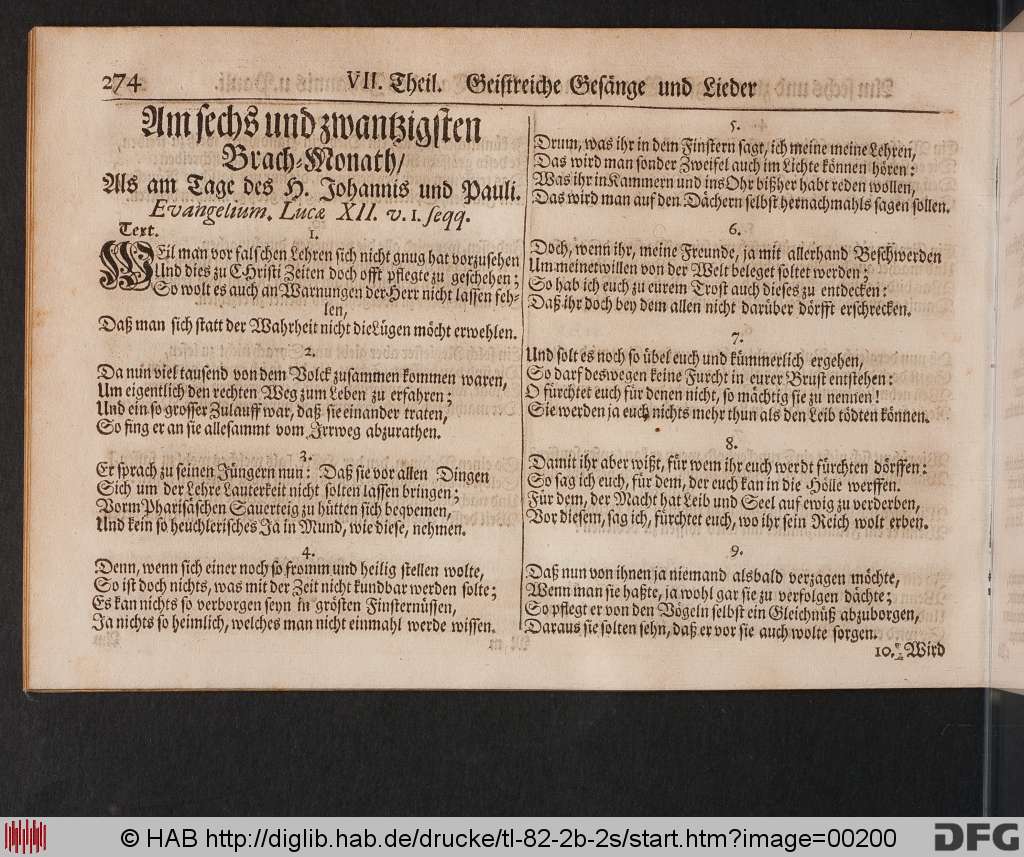 274
VII. Theil. Geistreiche Gesänge und Lieder
Am sechs und zwantzigsten
Brach-Monath/
Als am Tage des H. Johannis und Pauli.
Evangelium. Lucæ XII. v. 1. seqq.
Text.
1.
WEil man vor falschen Lehren sich nicht gnug hat vorzusehen
Und dies zu CHristi Zeiten doch offt pflegte zu geschehen;
So wolt es auch an Warnungen der Herr nicht lassen feh-
len,
Daß man sich statt der Wahrheit nicht die Lügen möcht erwehlen.
2.
Da nun viel tausend von dem Volck zusammen kommen waren,
Um eigentlich den rechten Weg zum Leben zu erfahren;
Und ein so grosser Zulauff war, daß sie einander traten,
So fing er an sie allesammt vom Irrweg abzurathen.
3.
Er sprach zu seinen Jüngern nun: Daß sie vor allen Dingen
Sich um der Lehre Lauterkeit nicht solten lassen bringen;
Vorm Pharisäschen Sauerteig zu hütten sich beqvemen,
Und kein so heuchlerisches Ja in Mund, wie diese, nehmen.
4.
Denn, wenn sich einer noch so fromm und heilig stellen wolte,
So ist doch nichts, was mit der Zeit nicht kundbar werden solte;
Es kan nichts so verborgen seyn in grösten Finsternüssen,
Ja nichts so heimlich, welches man nicht einmahl werde wissen.
5.
Drum, was ihr in dem Finstern sagt, ich meine meine Lehren,
Das wird man sonder Zweifel auch im Lichte können hören:
Was ihr in Kammern und ins Ohr bißher habt reden wollen,
Das wird man auf den Dächern selbst hernachmahls sagen sollen.
6.
Doch, wenn ihr, meine Freunde, ja mit allerhand Beschwerden
Um meinetwillen von der Welt beleget soltet werden;
So hab ich euch zu eurem Trost auch dieses zu entdecken:
Daß ihr doch bey dem allen nicht darüber dörfft erschrecken.
7.
Und solt es noch so übel euch und kümmerlich ergehen,
So darf deswegen keine Furcht in eurer Brust entstehen:
O fürchtet euch für denen nicht, so mächtig sie zu nennen!
Sie werden ja euch nichts mehr thun als den Leib tödten können.
8.
Damit ihr aber wißt, für wem ihr euch werdt fürchten dörffen:
So sag ich euch, für dem, der euch kan in die Hölle werffen.
Für dem, der Macht hat Leib und Seel auf ewig zu verderben,
Vor diesem, sag ich, fürchtet euch, wo ihr sein Reich wolt erben.
9.
Daß nun von ihnen ja niemand alsbald verzagen möchte,
Wenn man sie haßte, ja wohl gar sie zu verfolgen dächte;
So pflegt er von den Vögeln selbst ein Gleichnüß abzuborgen,
Daraus sie solten sehn, daß er vor sie auch wolte sorgen.
10. Wird
© HAB http://diglib.hab.de/drucke/tl-82-2b-2s/start.htm?image=00200
DFG